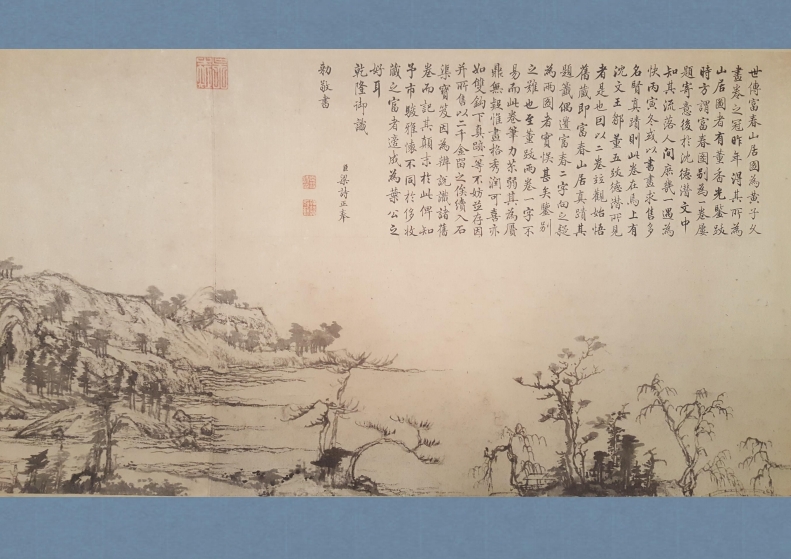 世傳富春山居圖為黃子久
畫卷之冠昨年得其所為
山居圖者有董香光鑒跋
時方謂富春圖別為一卷屢
題寄意後於沈德潛文中
知其流落人間庶幾一遇為
快丙寅冬或以書畫求售多
名賢真蹟則此卷在焉上有
沈文王鄒董五跋德潛所見
者是也因以二卷並觀始悟
舊藏即富春山居真蹟其
題籤偶遺富春二字向之疑
為兩圖者實悞甚矣鑒別
之難也至董跋兩卷一字不
易而此卷筆力苶弱其為贗
鼎無疑惟畫格秀潤可喜亦
如雙鈎下真蹟一等不妨並存因
并所售以二千金留之俟續入石
渠寶笈因為辨說識諸舊
卷而記其顛末於此俾知
予市駿雅懷不同於侈收
藏之富者適成為葉公之
好耳
乾隆御識
臣梁詩正奉
勅敬書